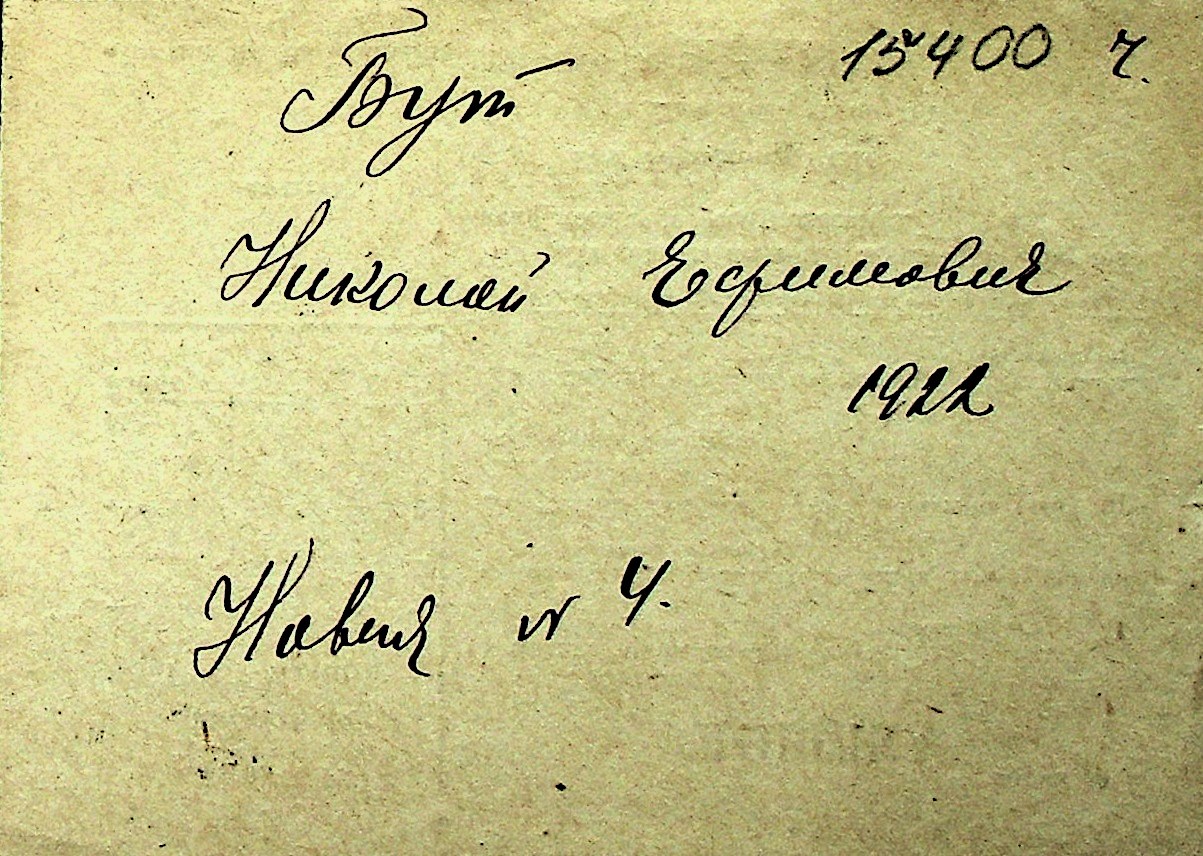 15400 ч.
Бут
Николай Ефимович
1922
№ 4.